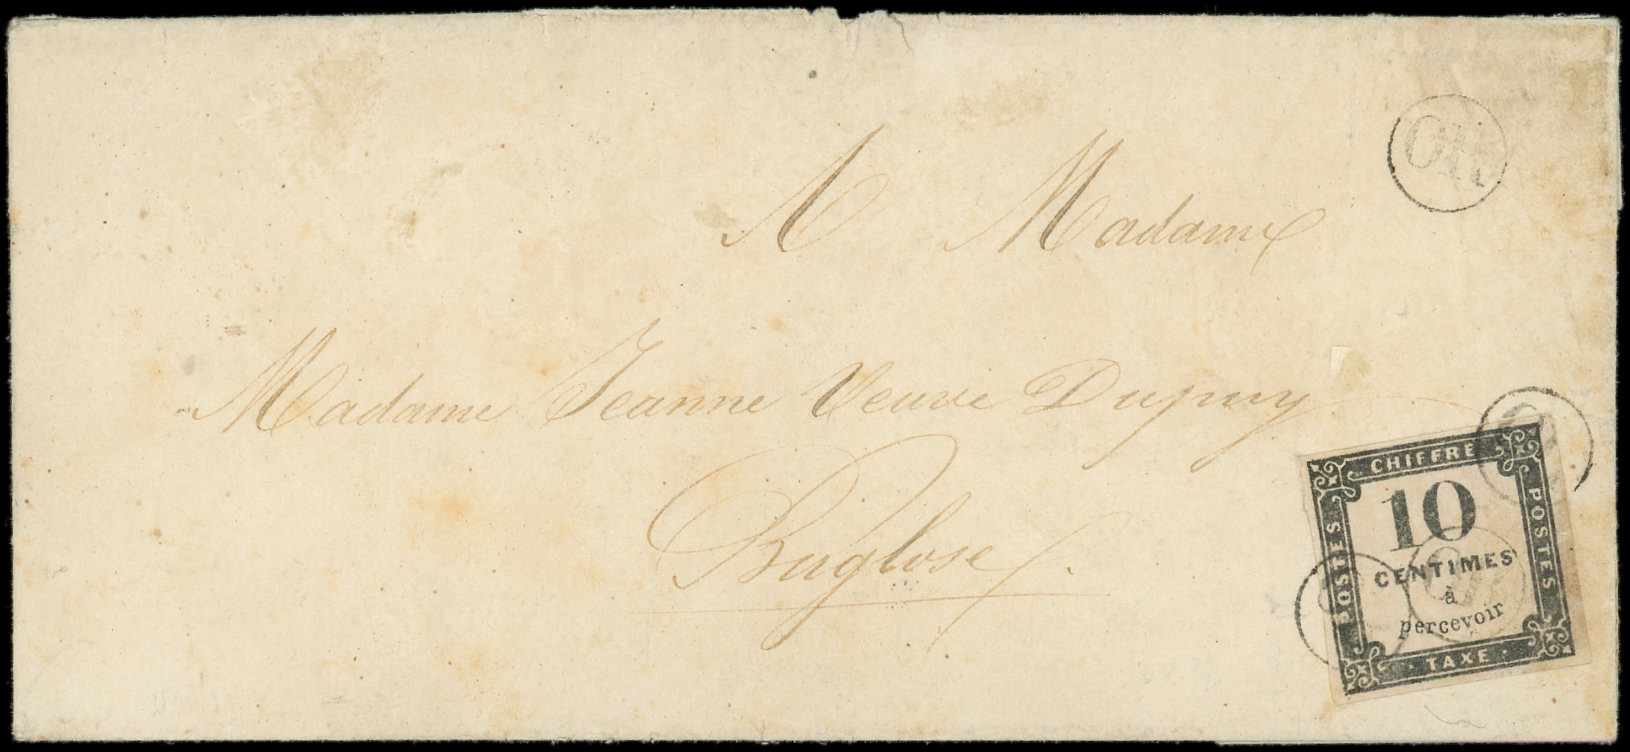 A Madame
Madame Jeanne Veuve Dupuy
Buglose
CHIFFRE
POSTES
POSTES
10
CENTIMES
à
percevoir
TAXE
OR